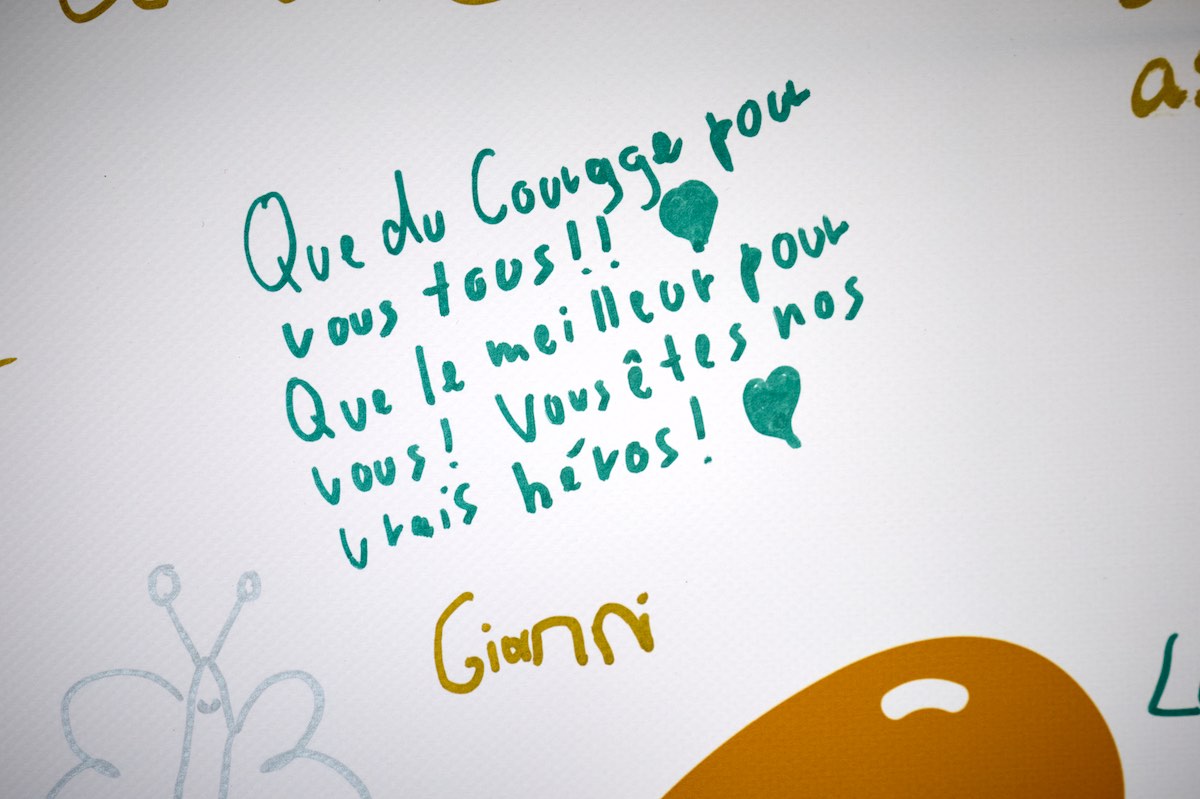 as
Que du Couragge pour
vous tous!!
Que le meilleur pour
vous! Vous êtes nos
vrais héros!
Gianni